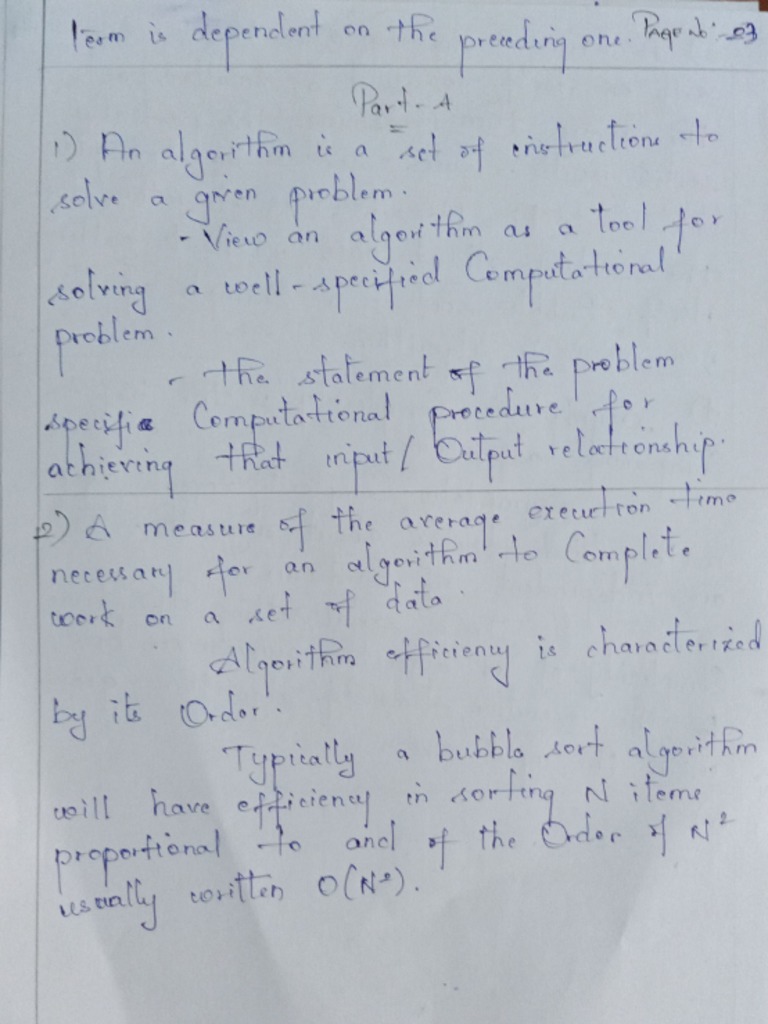 term is dependent on the preceding one. Page no:-03
Part-A
1) An algorithm is a set of instructions to
solve a given problem.
- View an algorithm as a tool for
solving a well-specified Computational
problem.
- The statement of the problem
specific Computational procedure for
achieving that input/Output relationship.
2) A measure of the average execution time
necessary for an algorithm to Complete
work on a set of data.
Algorithm efficiency is characterized
by its Order.
Typically a bubble sort algorithm
will have efficiency in sorting N items
proportional to and of the Order of N²
usually written O(N²).